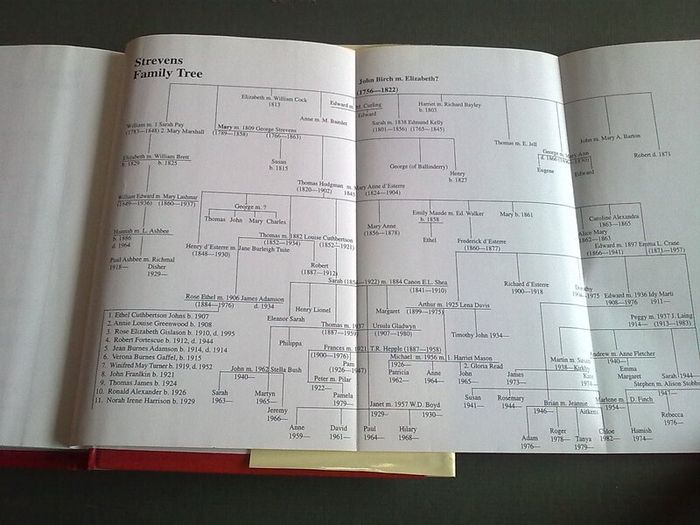 Strevens
Family Tree
John Birch m. Elizabeth?
(1756—1822)
Elizabeth m. William Cock
1813
Edward m. Curling
Edward
Harriet m. Richard Bayley
b. 1803
Anne m. M.
Sarah m. 1838 Edmund Kelly
(1801—1856) (1765—1845)
William m. 1 Sarah Pay
(1783—1848) 2. Mary Marshall
Mary m. 1809 George Stevens
(1789—1858) (1766—1863)
Thomas m. E. Jell
John m. Mary A. Barton
George m. Mary Ann
Robert d. 1871
Elizabeth m. William Brett
b. 1829 b. 1825
Susan
b. 1815
George (of Ballinderry)
Henry
b. 1827
Eugene
Edward
Thomas Hodgman m. Mary Anne d'Esterre
(1820—1902) 1845 (1824—1904)
William Edward m. Mary Lashmar
(1849—1936) (1860—1937)
George m. ?
Thomas John Mary Charles
Mary Anne
(1856—1878)
Emily Maude m. Ed. Walker
b. 1858
Mary b. 1861
Ethel
Frederick d'Esterre
(1860—1877)
Caroline Alexandra
1863—1865
Alice Mary
1862—1863
Edward m. 1897 Emma L. Crane
(1866—1941) (1873—1957)
Hannah m. L. Ashbee
b. 1886
d. 1964
Thomas m. 1882 Louise Cuthbertson
(1852—1934) (1852—1921)
Henry d'Esterre m. Jane Burleigh Tuite
(1848—1930)
Paul Ashbee m. Richmal
1918— Disher
1929—
Robert
(1887—1912)
Sarah (1854—1922) m. 1884 Canon E.L. Shea
(1841—1910)
Richard d'Esterre
1900—1918
Dorothy
Edward m. 1936 Idy Marti
(1908—1976 1911—
Rose Ethel m. 1906 James Adamson
(1884—1976) d. 1934
Henry Lionel
Margaret
Arthur m. 1925 Lena Davis
(1899—1975)
Peggy m. 1937 J. Laing
(1914— (1913—1983)
1. Ethel Cuthbertson Johns b. 1907
2. Annie Louise Greenwood b. 1908
3. Rose Elizabeth Gislason b. 1910, d. 1995
4. Robert Fortescue b. 1912, d. 1944
5. Jean Burnes Adamson b. 1914, d. 1914
6. Verona Burnes Gaffel, b. 1915
7. Winifred May Turner b. 1919, d. 1952
8. John Franklin b. 1921
9. Thomas James b. 1924
10. Ronald Alexander b. 1926
11. Norah Irene Harrison b. 1929
Eleanor Sarah
Thomas m. 1937 Ursula Gladwyn
(1887—1959) (1907—1980)
Timothy John 1934—
Philippa
Frances m. 1921 T.R. Hepple (1887—1958)
(1900—1976)
Michael m. 1956 m. 1. Harriet Mason
1926— 2. Gloria Read
Martin m. Susan
1938— Kirkby
Andrew m. Anne Fletcher
1940—
Emma
Margaret
Sarah
1944—
John m. 1962 Stella Bush
1940—
Pam
(1926—1947)
Peter m. Pilar
1922—
Patricia
1962—
Anne
1964—
John
1965—
James
1973—
Stephen m. Alison Stokes
Sarah
1963—
Martyn
1965—
Pamela
1979—
Susan
1941—
Rosemary
1944—
Brian m. Jeannie
1946— Aitkens
Marlene m. D. Finch
1947—
1954—
Rebecca
1976—
Jeremy
1966—
Janet m. 1957 W.D. Boyd
1929— 1930—
Anne
1959—
David
1961—
Paul
1964—
Hilary
1968—
Adam
1976—
Roger
1978—
Tanya
1979—
Chloe
1982—
Hamish
1974—